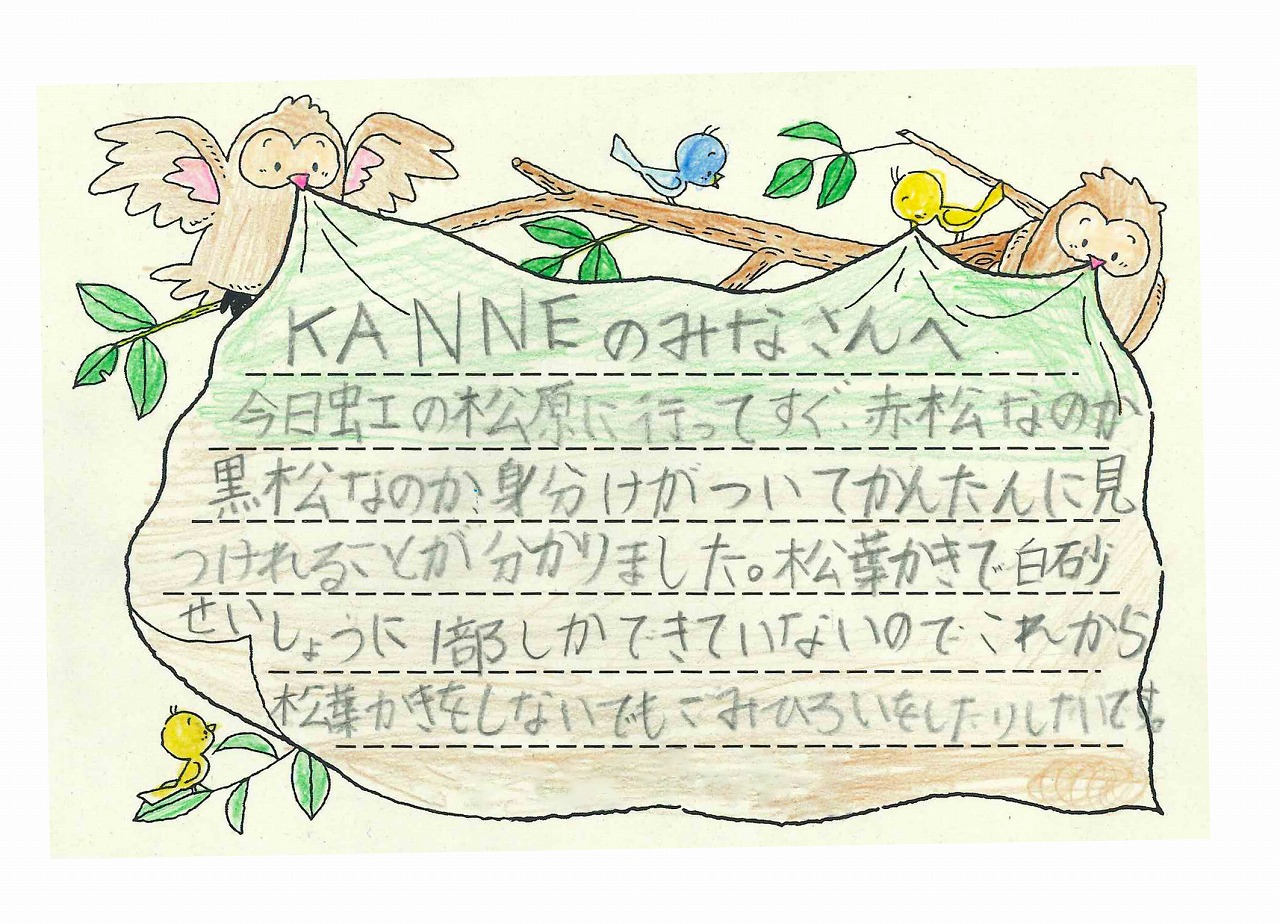 KANNEのみなさんへ
今日虹の松原に行ってすぐ、赤松なのか
黒松なのか、身分けがついてかんたんに見
つけれることが分かりました。松葉かきで白砂
せいしょうに1部しかできていないのでこれから
松葉かきをしないでもごみひろいをしたりしたいです。